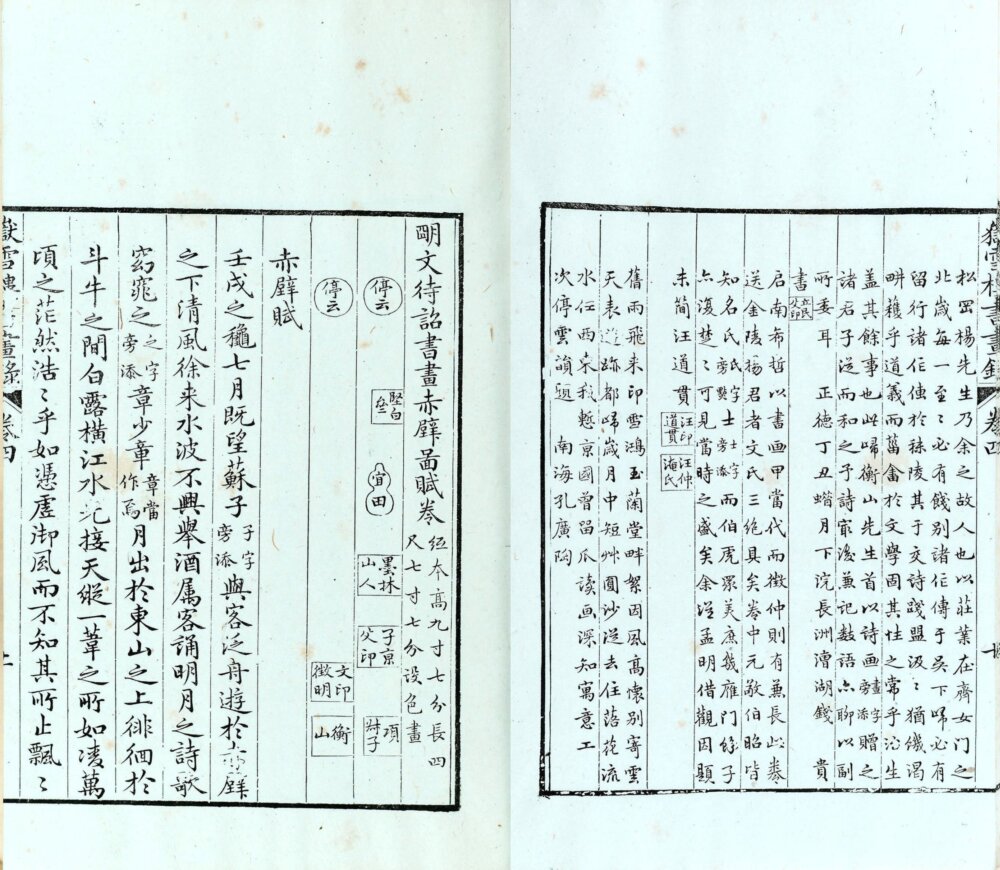 嶽雪樓書畫錄 卷四
松岡楊先生乃余之故人也以莊業在齊女門之
北歲每一至〻必有餞別諸作傳于吳下歸必有
留行諸作傳於秣陵其于交詩踐盟汲〻猶饑渴
畊穫乎道義而菑畬於文學固其性之常乎治生
蓋其餘事也此歸衡山先生首以詩画畫字旁添贈之
諸君子從而和之予詩最後兼記數語亦聊以副
所委耳 正德丁丑蜡月下浣長洲漕湖錢貴
書 父印
启南希哲以書画甲當代而徵仲則有兼長此卷
送金陵揚君者文氏三絕具矣卷中元敬伯昭皆
知名氏氏字旁點士士字旁添而伯虎眾美庶幾雁門餘子
亦復楚〻可見當時之盛矣余從孟明借觀因題
末簡汪道貫 汪印道貫 汪仲淹氏
舊雨飛來印雪鴻玉蘭堂畔絮因風高懷別寄雲
天表遊跡都歸歲月中短艸圓沙從去住落花流
水任西東我慙京國曾留爪读画深知寓意工
次停雲韻題 南海孔廣陶
明文待詔書畫赤壁啚賦卷 紙本高九寸七分長四尺七寸七分設色畫
停云 堅白 宜田 墨林山人 子京父印 項
停云 文印徵明 衡山
赤壁賦
壬戌之穐七月既望蘇子子字旁添與客泛舟遊於赤壁
之下清風徐来水波不興舉酒属客誦明月之詩歌
窈窕之之字旁添章少章章當作焉月出於東山之上徘徊於
斗牛之間白露橫江水光接天縱一葦之所如凌萬
頃之茫然浩〻乎如憑虛御風而不知其所止飄〻
嶽雪樓書畫錄 卷四